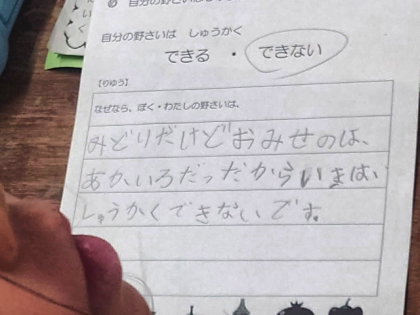 自分の野さいは しゅうかく
できる ・ できない
【りゆう】
なぜなら、ぼく・わたしの野さいは、
みどりだけどおみせのは、
あかいろだったからいまは、
しゅうかくできないです。